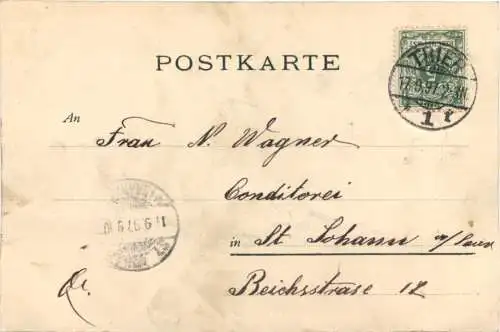 POSTKARTE
TRIER
17.9.97.
1 f
An
Frau N. Wagner
Conditorei
in St Johann a/Saar
Reichsstrase 12